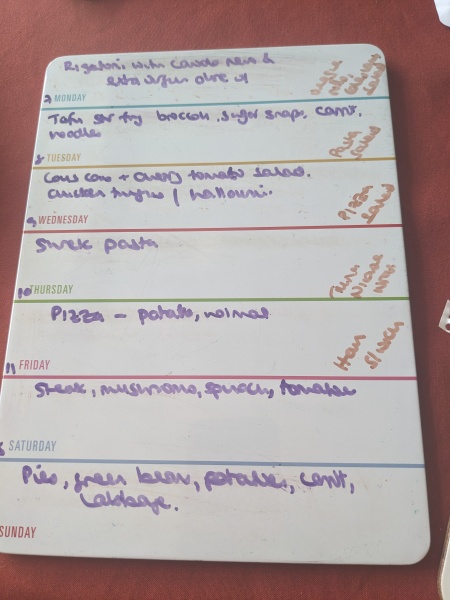 Rigatoni with cavolo nero &
extra virgin olive oil
7 MONDAY
Tofu stir fry broccoli, sugar snaps, carrot,
noodles
Pasta
salad
8 TUESDAY
Cous cous + cherry tomato salad.
chicken thighs / halloumi.
Pizza
salad
9 WEDNESDAY
Shrek pasta
Tuna
Nicoise
10 THURSDAY
Pizza – potato, normal
Ham
11 FRIDAY
Steak, mushrooms, spinach, tomatoes
SATURDAY
Pies, green bean, potatoes, carrot,
cabbage.
SUNDAY